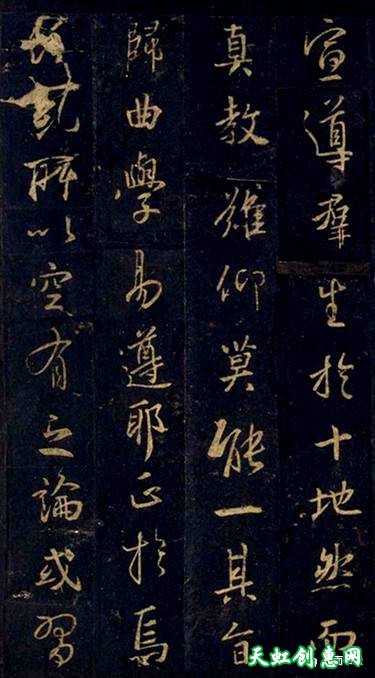 宣導羣生於十地然而
真教難仰莫能一其旨
歸曲學易遵耶正於焉
糺所以空有之論或習
天虹创惠网